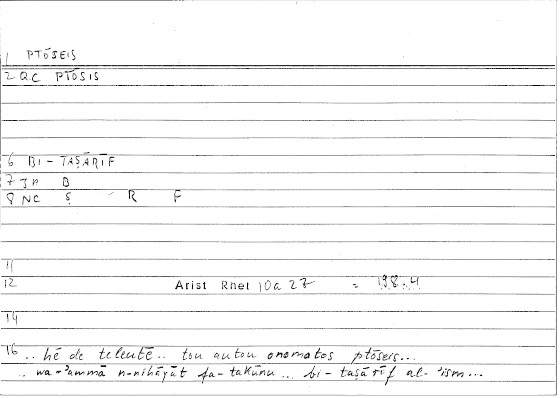 1 PTŌSEIS
2 QC PTŌSIS
6 BI-TAṢĀRĪF
7 B
8 NC Ṣ R F
11
12 Arist Rhet 10a 27 = 198.4
14
16 .. hē de teleutē .. tou autou onomatos ptōseis...
.. wa-'ammā n-nihāyāt fa-takūnu ... bi-taṣārīf al-'ism ...